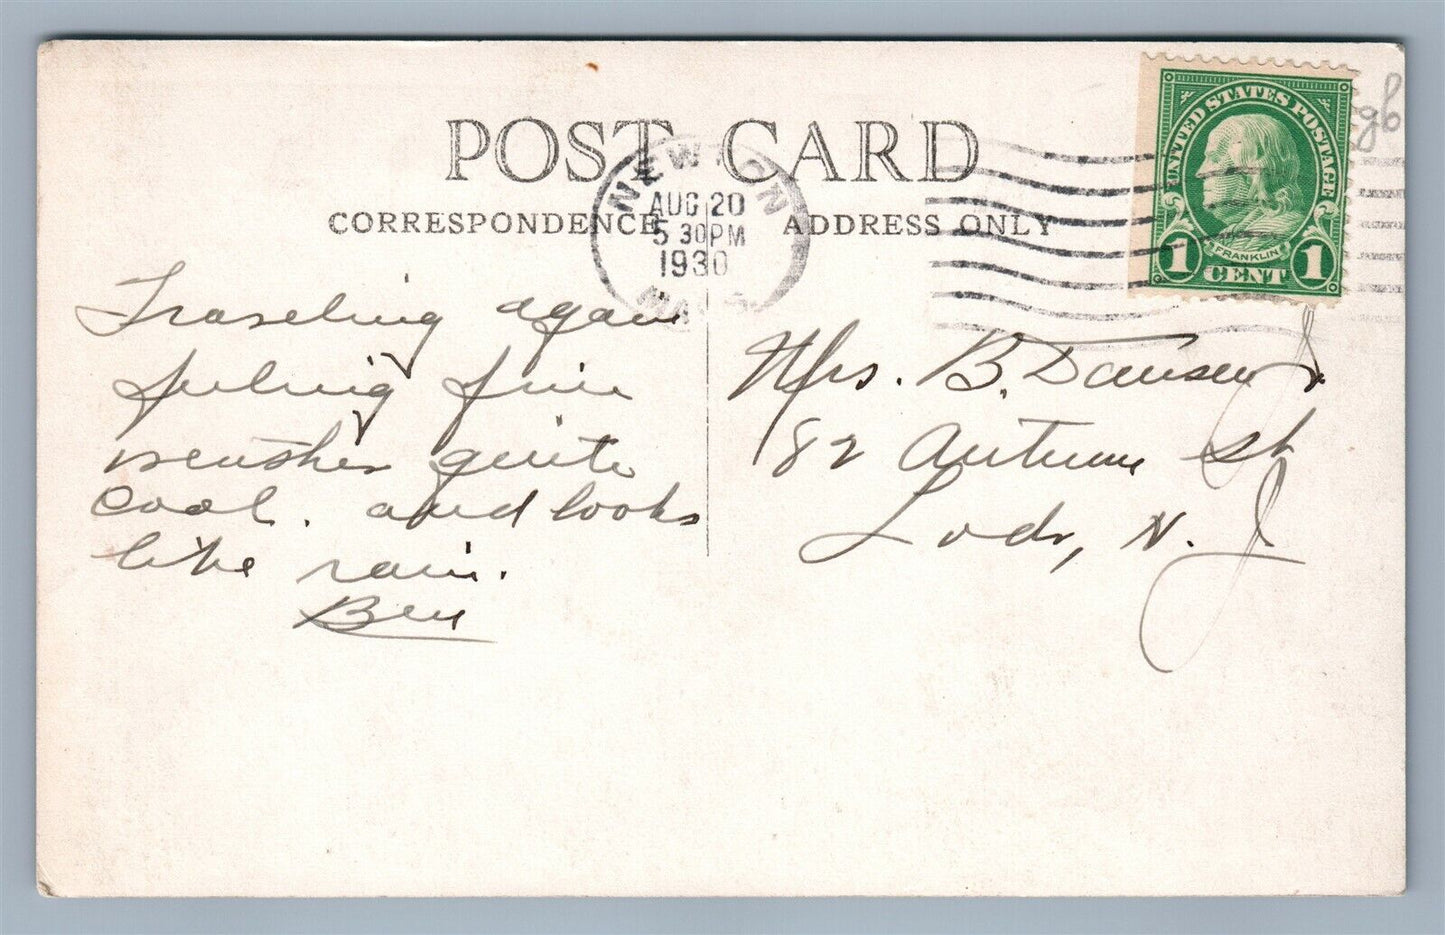 POST CARD
CORRESPONDENCE ADDRESS ONLY
NEWTON
AUG 20
5 30PM
1930
MASS.
UNITED STATES POSTAGE
FRANKLIN
1 CENT 1
gb
Traveling again
feeling fine
weather quite
cool. and looks
like rain.
Ben
Mrs. B.
82 Autumn St
Lodi, N. J.